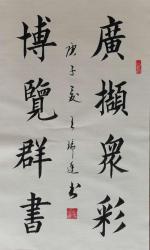 廣擷衆彩
博覽群書
庚子夏王瑞
書